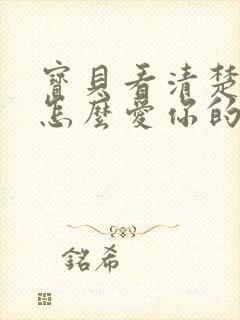 寶貝看清楚
怎麼愛你的
銘希